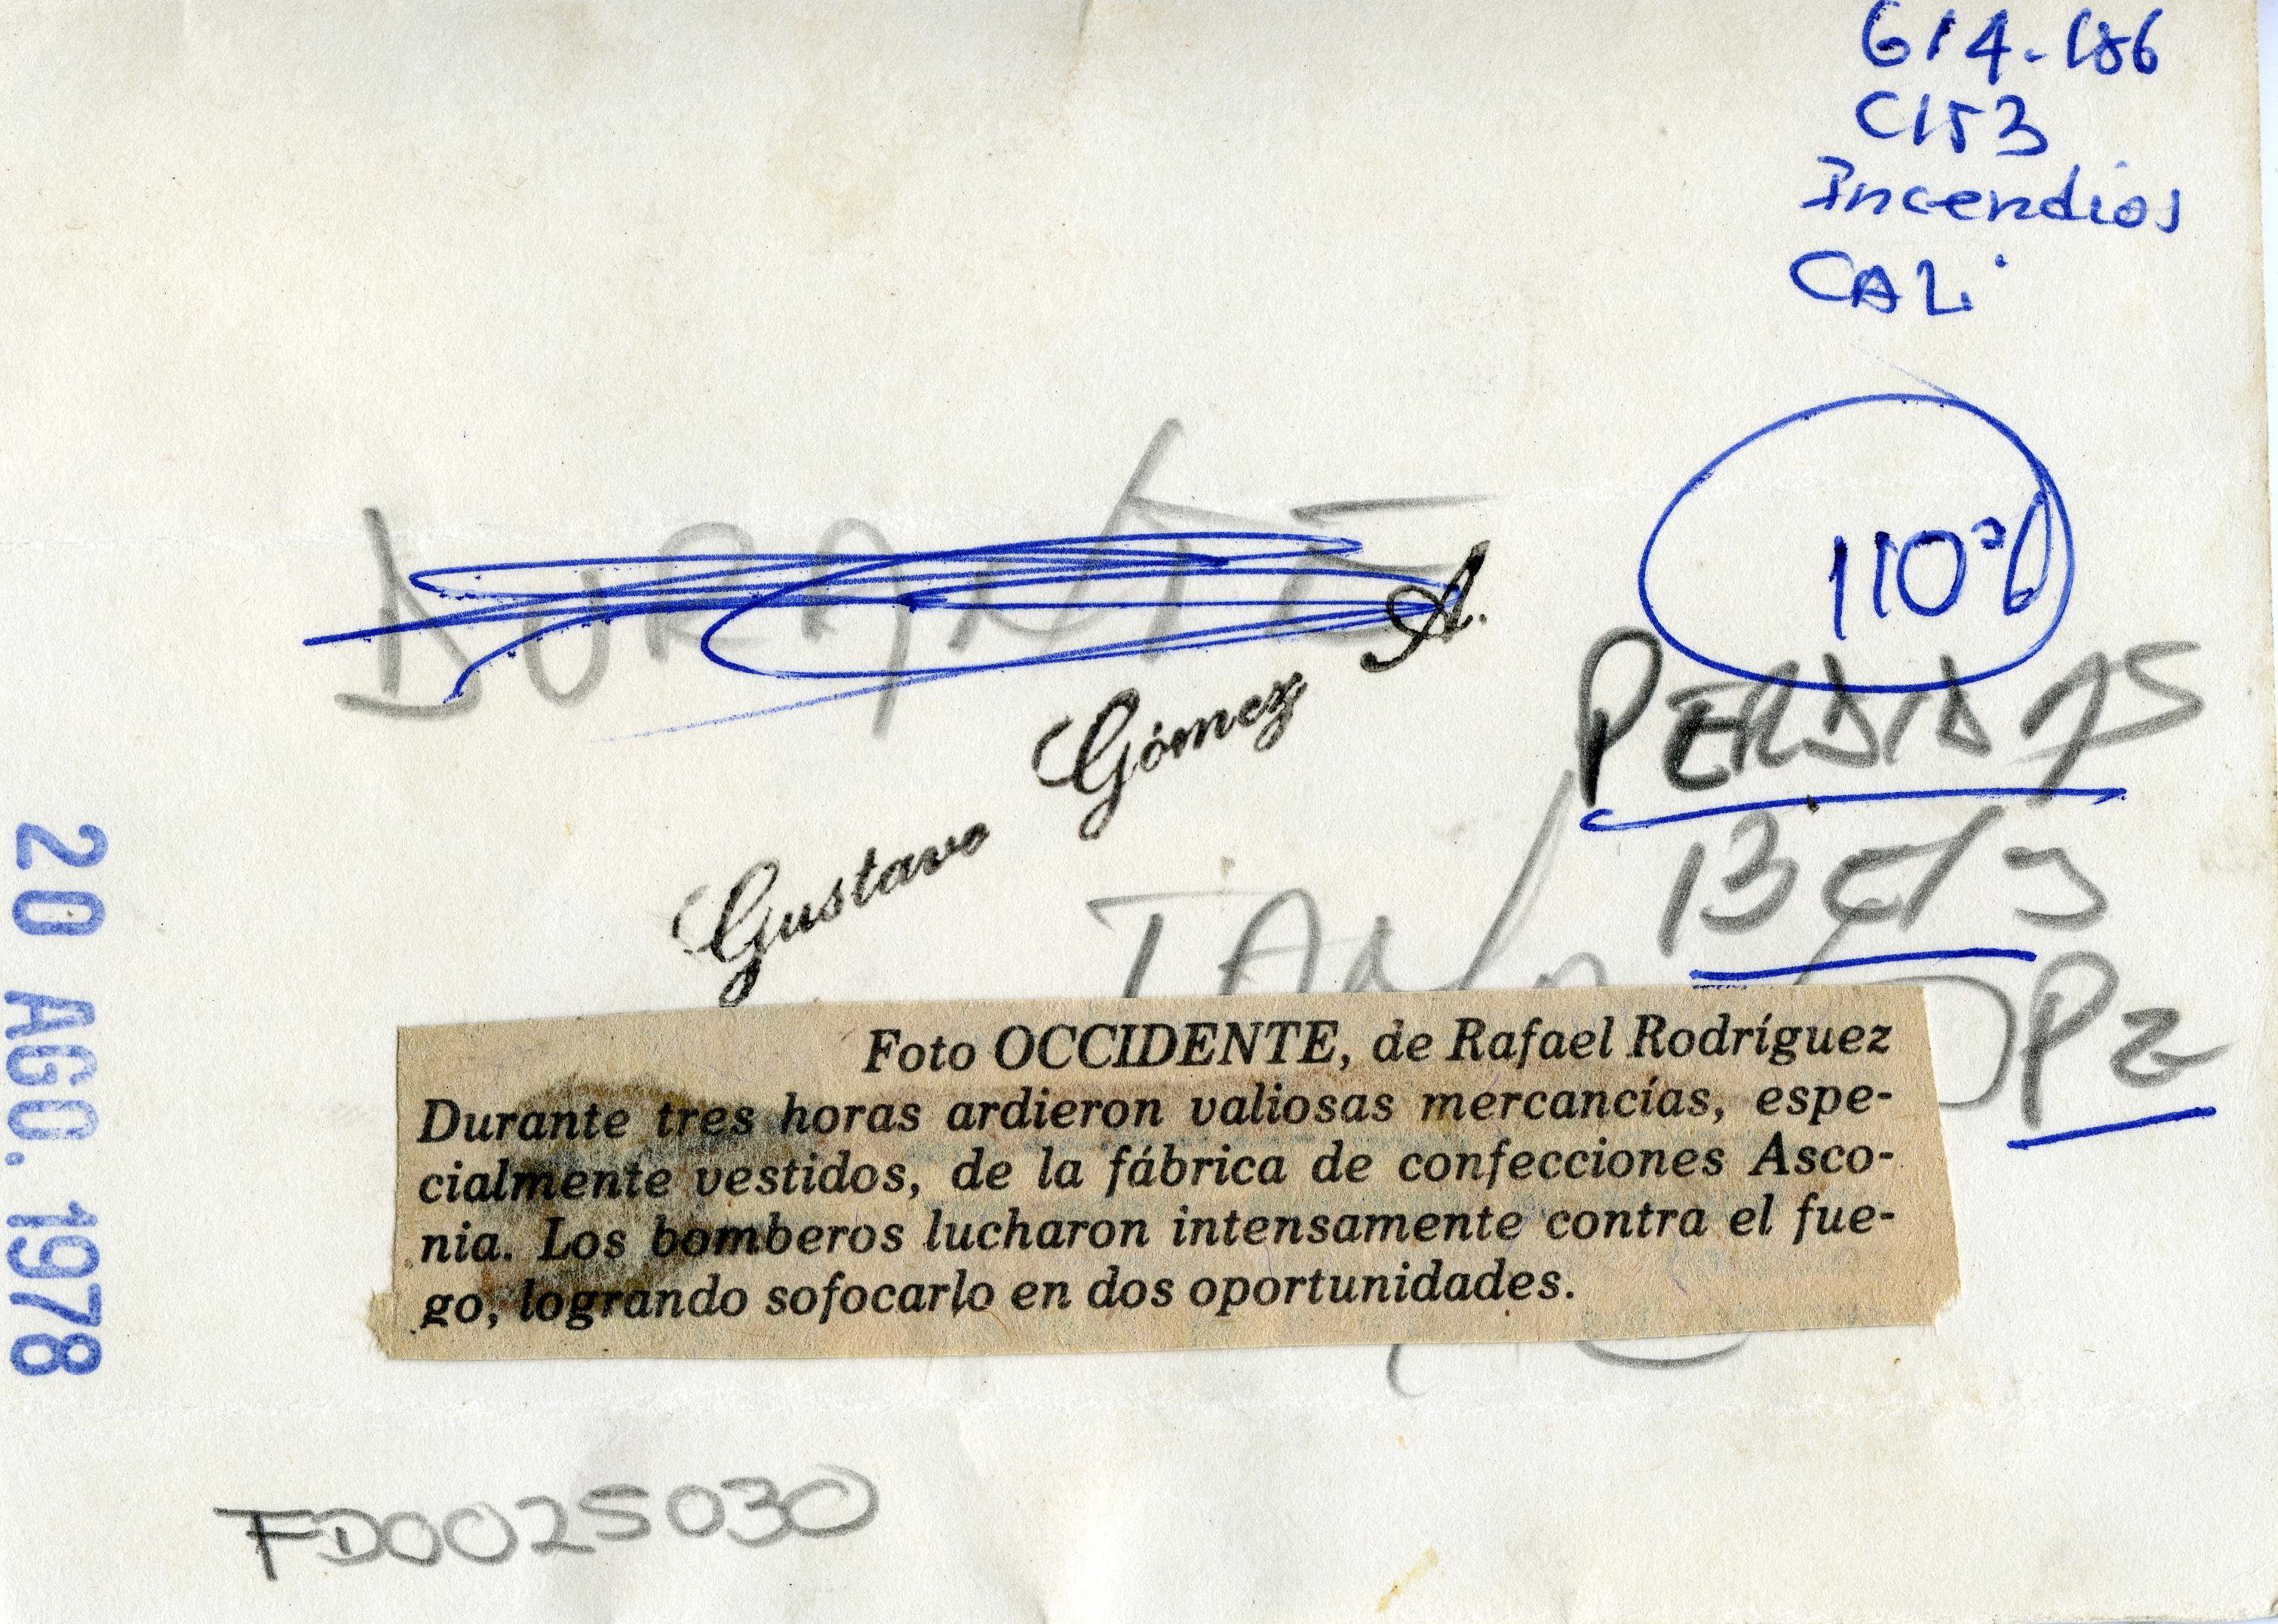 614-186
C153
Incendios
CALi
DURANTE
110%
PERDIDAS
Gustavo Gómez A.
13 c/s
Pz
20 AGO. 1978
Foto OCCIDENTE, de Rafael Rodríguez
Durante tres horas ardieron valiosas mercancías, espe-
cialmente vestidos, de la fábrica de confecciones Asco-
nia. Los bomberos lucharon intensamente contra el fue-
go, logrando sofocarlo en dos oportunidades.
FD0025030